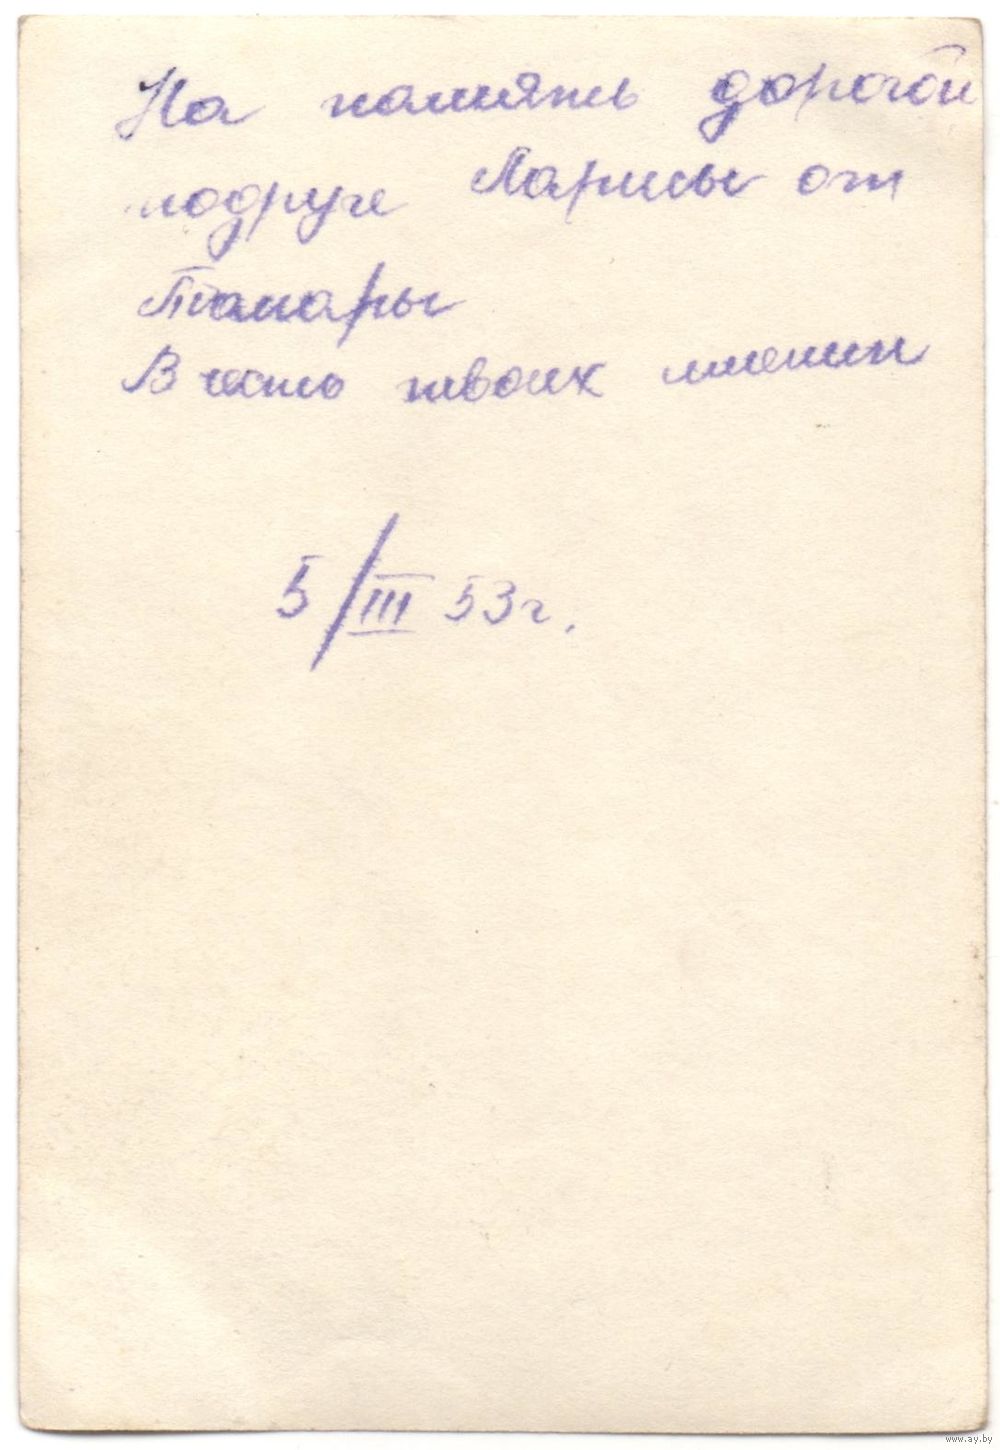 На память дорогой
подруге Ларисы от
Тамары
В честь твоих имении
5/III 53г.
www.ay.by